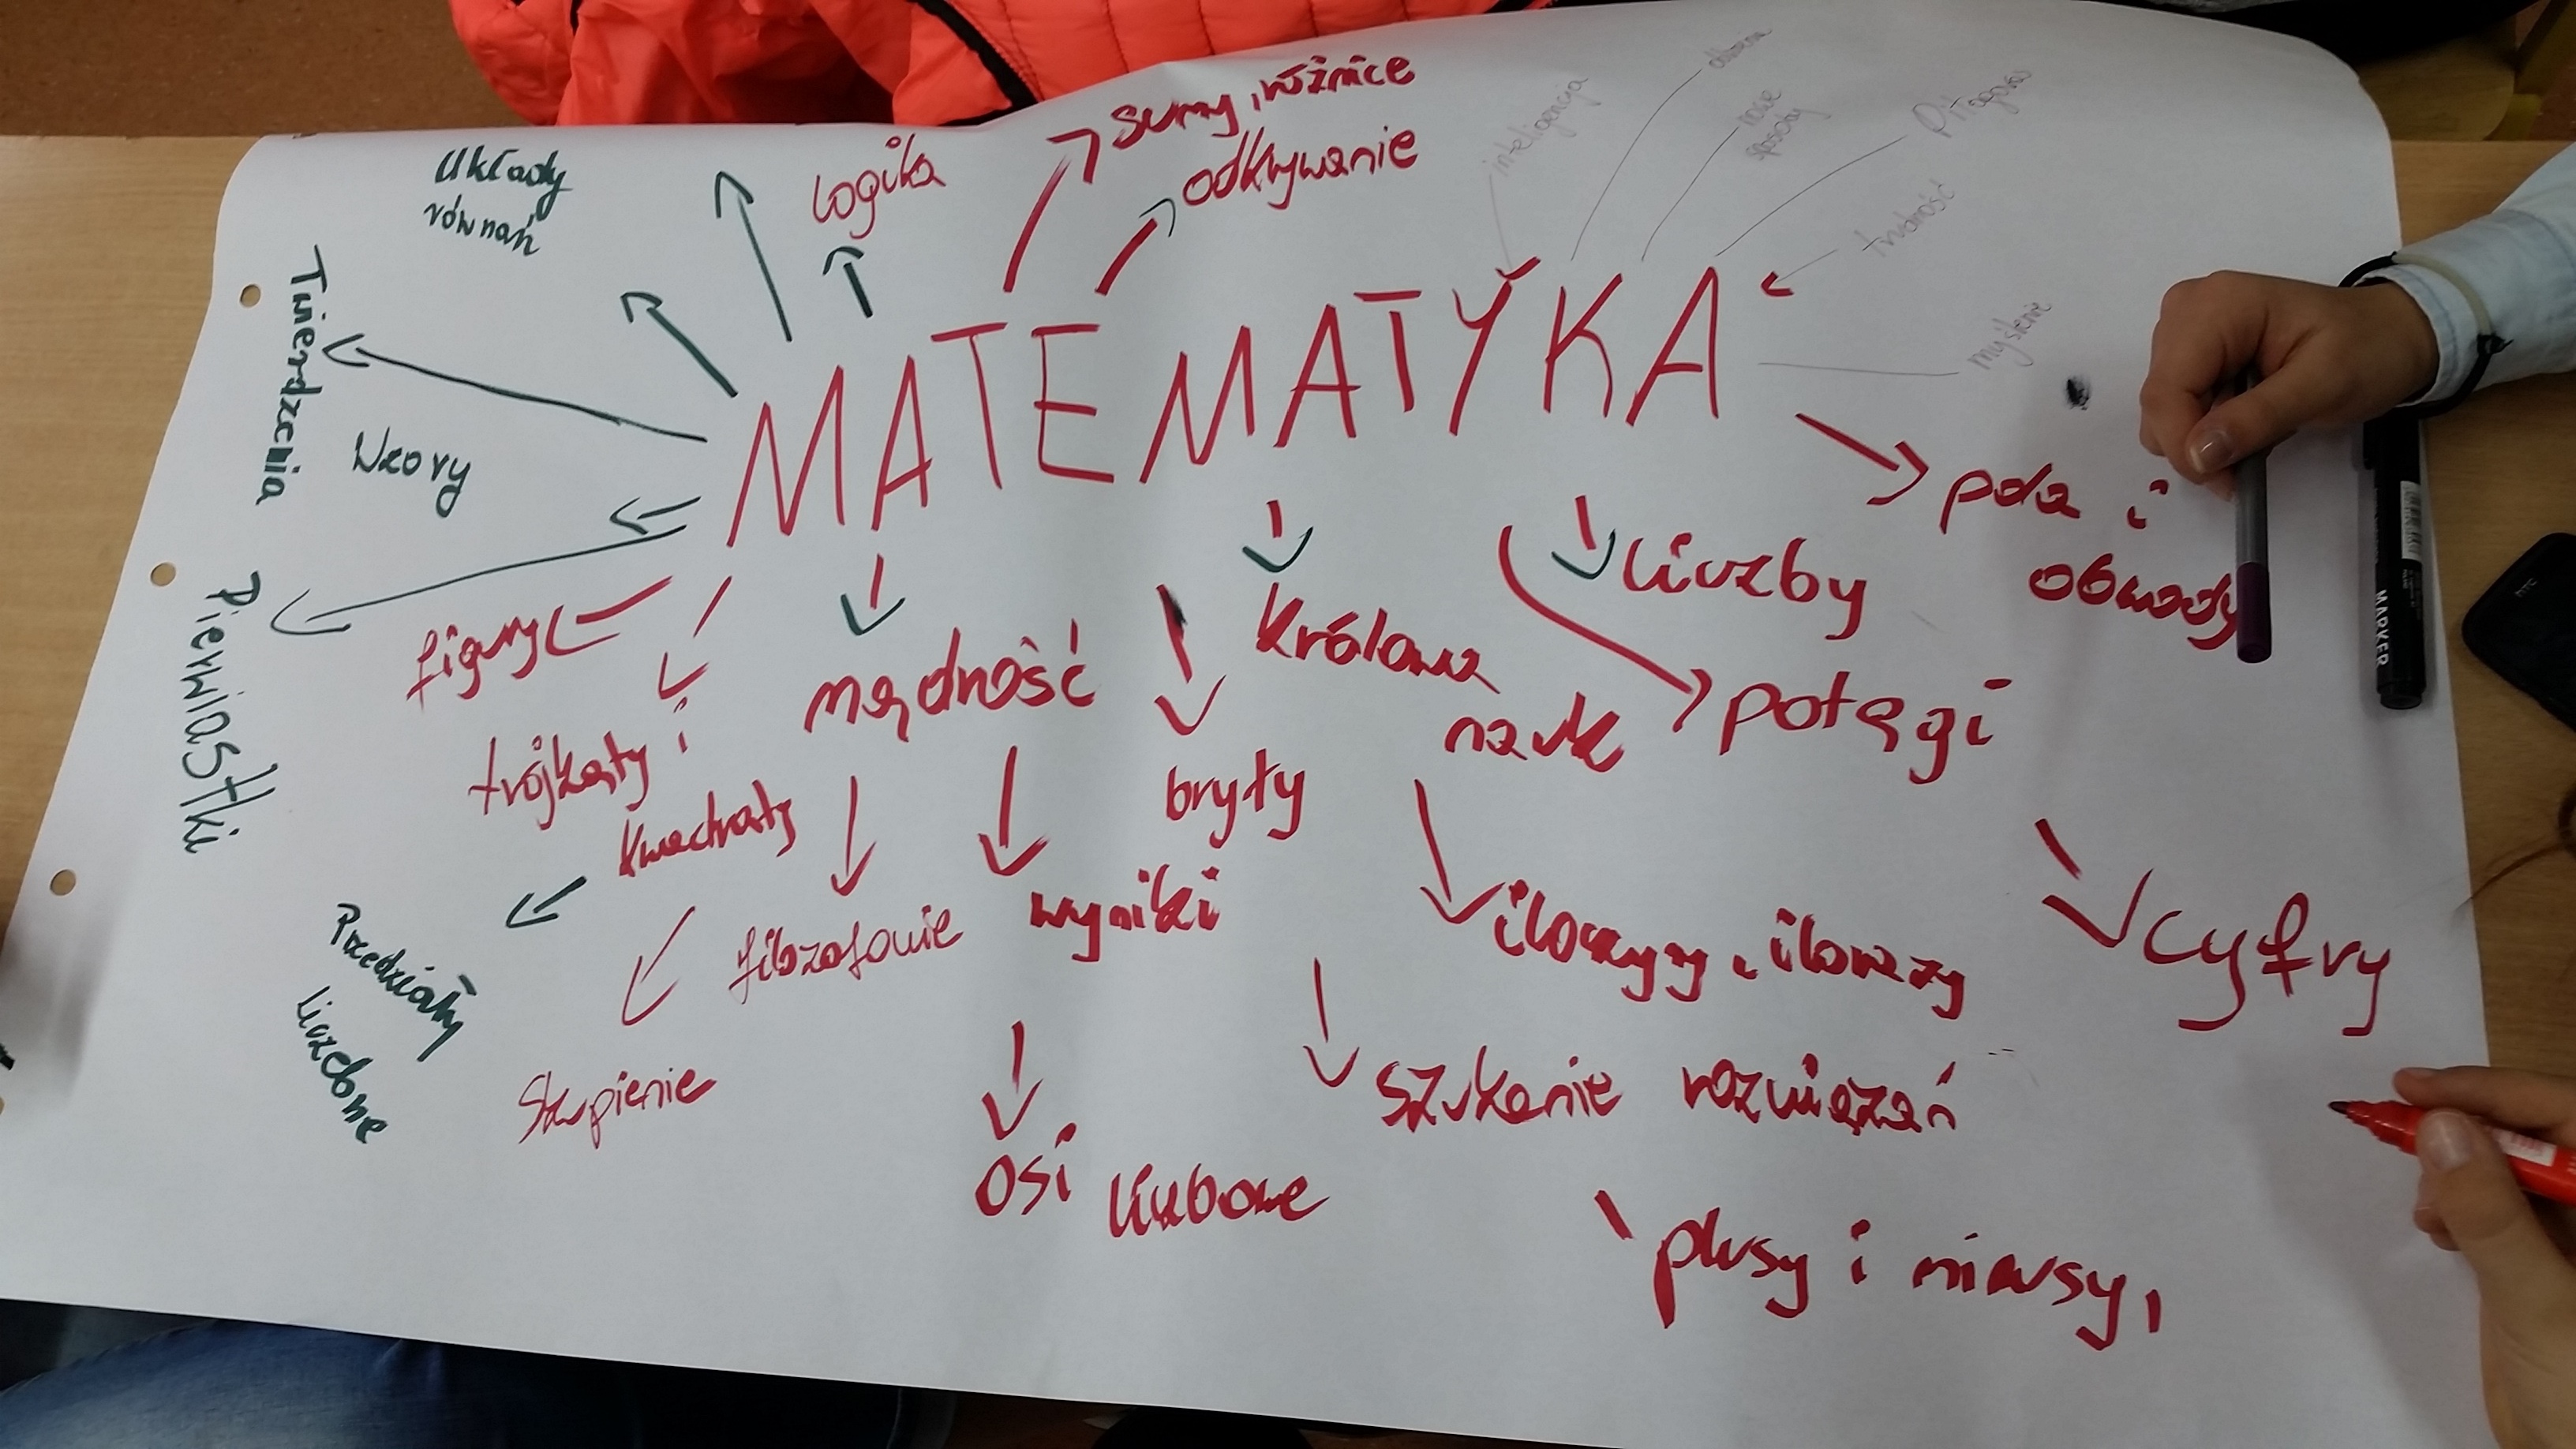 sumy, różnice
odkrywanie
logika
Układy
równań
inteligencja
nowe
sposoby
Pitagoras
trudność
myślenie
Twierdzenia
Wzory
MATEMATYKA
pola i
obwody
liczby
potęgi
królowa
nauk
mądrość
figury
Pierwiastki
trójkąty i
kwadraty
bryły
wyniki
filozofowie
iloczyny, ilorazy
cyfry
Przedziały
liczbowe
Skupienie
szukanie rozwiązań
osi liczbowe
plusy i minusy,
MARKER
htc